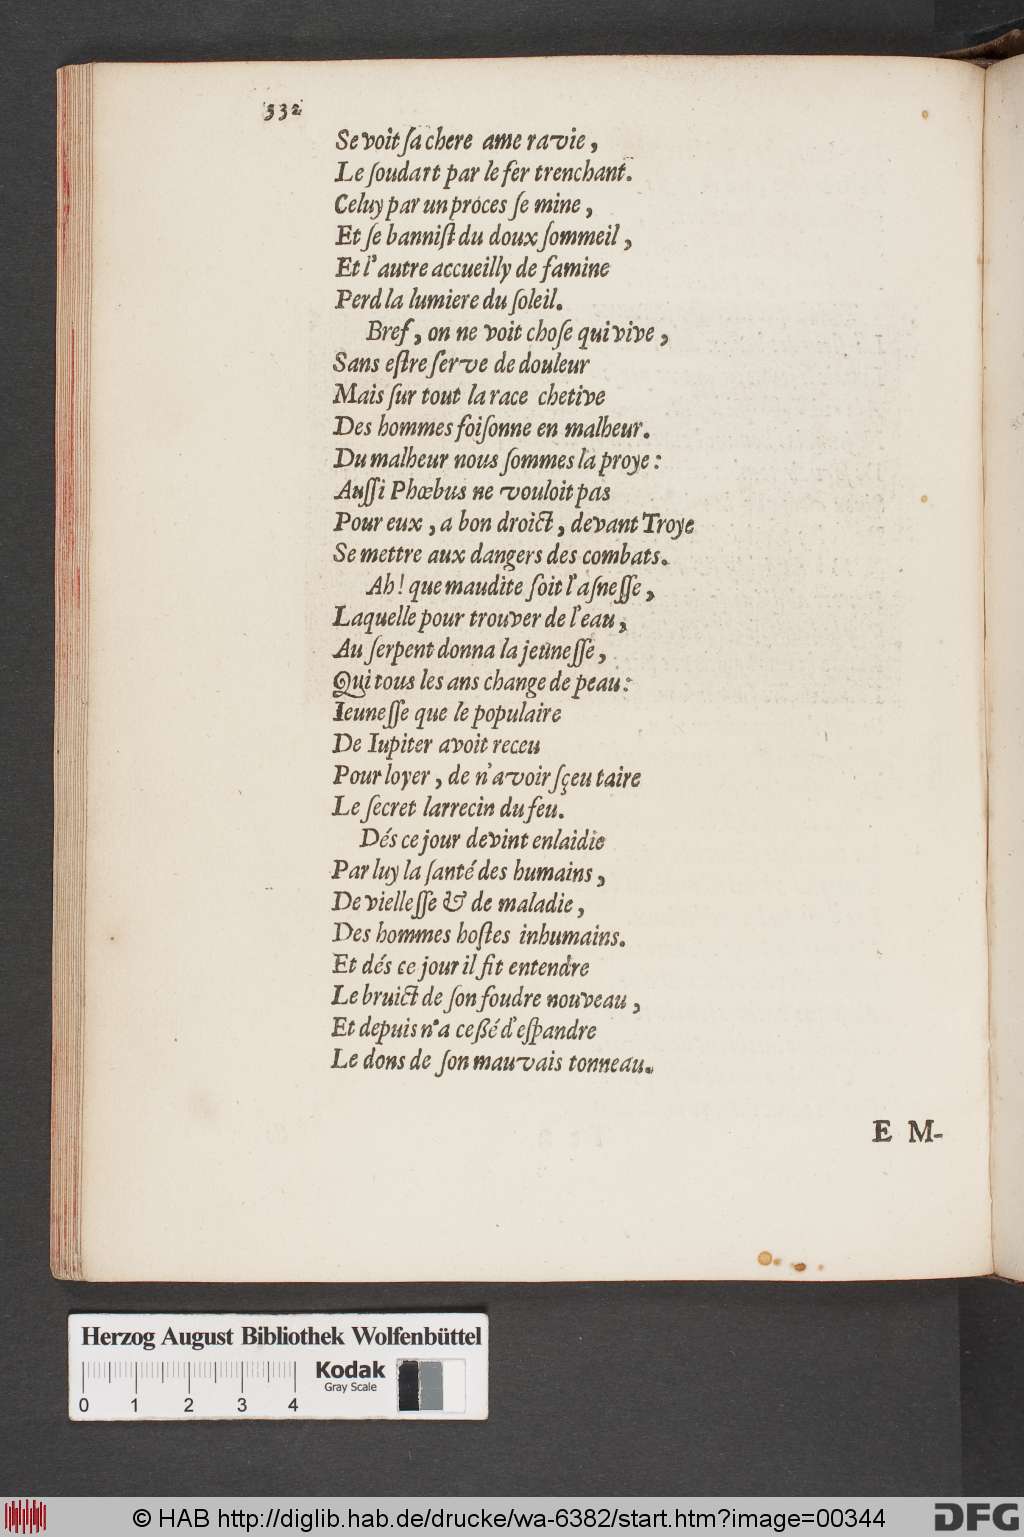 332
Se voit ſa chere ame ravie,
Le ſoudart par le fer trenchant.
Celuy par un proces ſe mine,
Et ſe banniſt du doux ſommeil,
Et l'autre accueilly de famine
Perd la lumiere du ſoleil.
Bref, on ne voit choſe qui vive,
Sans eſtre ſerve de douleur
Mais ſur tout la race chetive
Des hommes foiſonne en malheur.
Du malheur nous ſommes la proye:
Auſſi Phœbus ne vouloit pas
Pour eux, a bon droict, devant Troye
Se mettre aux dangers des combats.
Ah! que maudite ſoit l'aſneſſe,
Laquelle pour trouver de l'eau,
Au ſerpent donna la jeuneſſe,
Qui tous les ans change de peau:
Ieuneſſe que le populaire
De Iupiter avoit receu
Pour loyer, de n'avoir ſçeu taire
Le ſecret larrecin du feu.
Dés ce jour devint enlaidie
Par luy la ſanté des humains,
De vielleſſe & de maladie,
Des hommes hoſtes inhumains.
Et dés ce jour il fit entendre
Le bruict de ſon foudre nouveau,
Et depuis n'a ceßé d'eſpandre
Le dons de ſon mauvais tonneau.
E M-
Herzog August Bibliothek Wolfenbüttel
Kodak
Gray Scale
0 1 2 3 4
© HAB http://diglib.hab.de/drucke/wa-6382/start.htm?image=00344
DFG